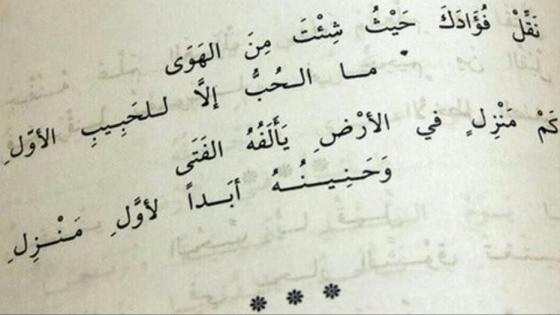 نَقِّلْ فُؤَادَكَ حَيْثُ شِئْتَ مِنَ الهَوَى
ما الحُبُّ إلَّا للحَبِيبِ الأوَّلِ
كَمْ مَنْزِلٍ في الأرْضِ يَأْلَفُهُ الفَتَى
وَحَنِينُهُ أبَداً لأوَّلِ مَنْزِلِ